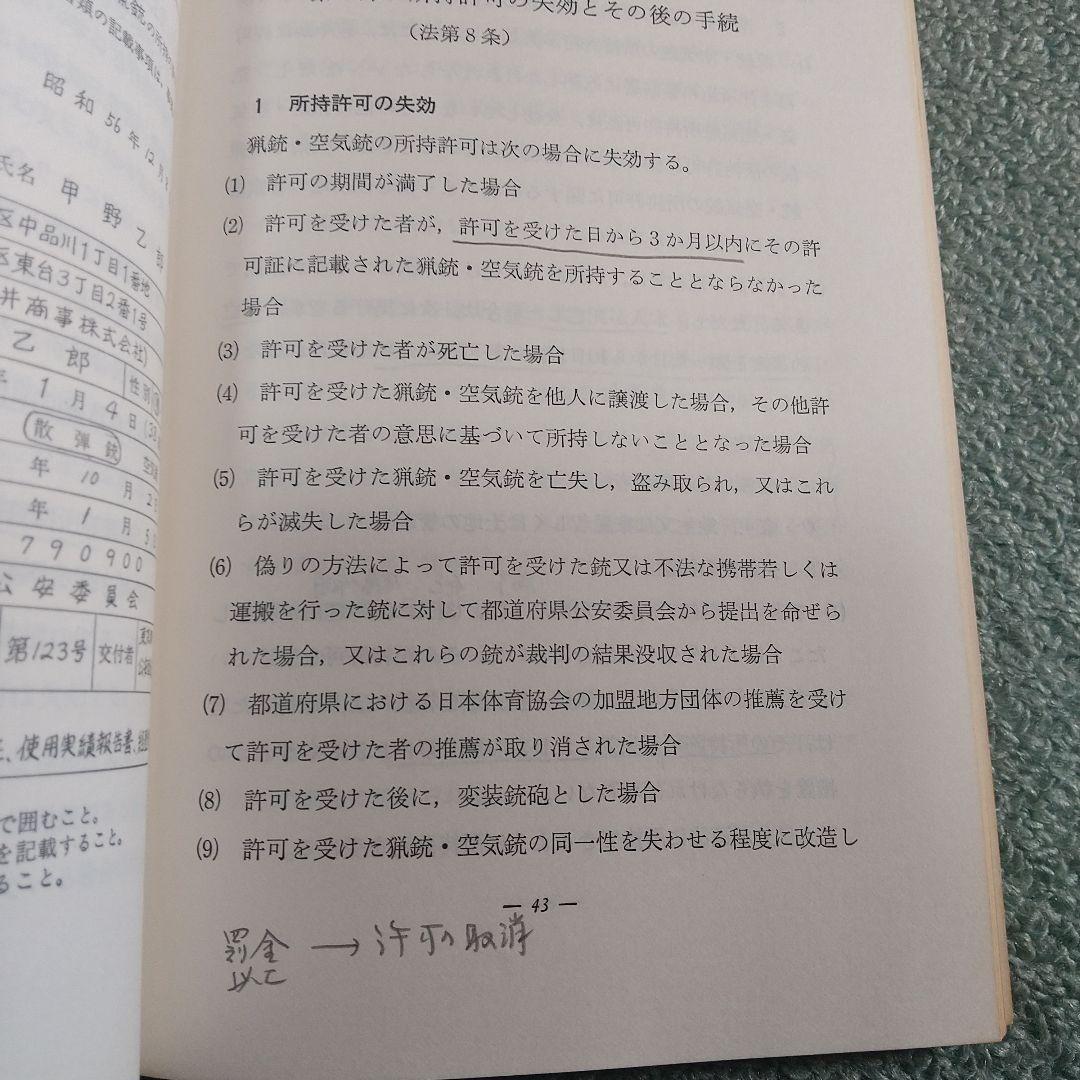 昭和56年12月
氏名 甲野乙郎
区中品川1丁目1番地
区東台3丁目2番1号
井商事株式会社)
乙郎 性別
年1月4日
散弾銃
年10月2
年1月5
790900
公安委員会
第123号 交付者
使用実績報告書、
で囲むこと。
を記載すること。
ること。
所持許可の失効とその後の手続
（法第８条）
1 所持許可の失効
猟銃・空気銃の所持許可は次の場合に失効する。
(1) 許可の期間が満了した場合
(2) 許可を受けた者が，許可を受けた日から３か月以内にその許
可証に記載された猟銃・空気銃を所持することとならなかった
場合
(3) 許可を受けた者が死亡した場合
(4) 許可を受けた猟銃・空気銃を他人に譲渡した場合，その他許
可を受けた者の意思に基づいて所持しないこととなった場合
(5) 許可を受けた猟銃・空気銃を亡失し，盗み取られ，又はこれ
らが滅失した場合
(6) 偽りの方法によって許可を受けた銃又は不法な携帯若しくは
運搬を行った銃に対して都道府県公安委員会から提出を命ぜら
れた場合，又はこれらの銃が裁判の結果没収された場合
(7) 都道府県における日本体育協会の加盟地方団体の推薦を受け
て許可を受けた者の推薦が取り消された場合
(8) 許可を受けた後に，変装銃砲とした場合
(9) 許可を受けた猟銃・空気銃の同一性を失わせる程度に改造し
— 43 —
罰金 → 許可の取消
以上